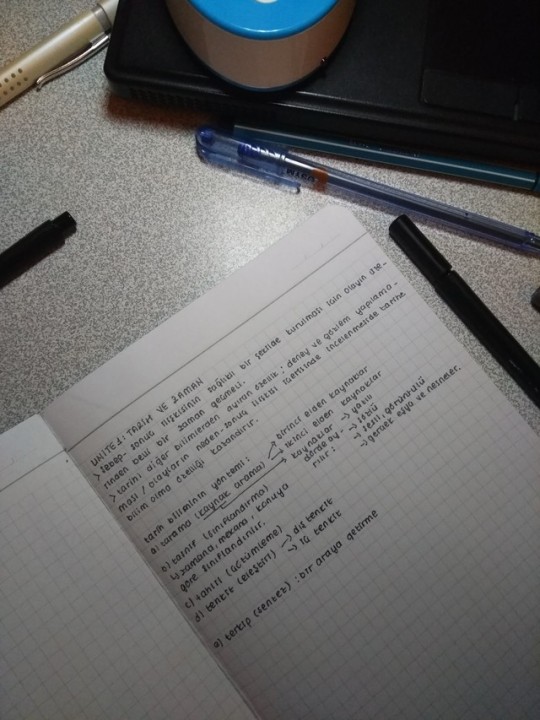 ÜNİTE 1: TARİH VE ZAMAN
> sebep-sonuç ilişkisinin sağlıklı bir şekilde kurulması için olayın üze-
rinden belli bir zaman geçmeli.
> tarihi diğer bilimlerden ayıran özellik; deney ve gözlem yapılama-
ması / olayların neden-sonuç ilişkisi içerisinde incelenmeside tarihe
bilim olma özelliği kazandırır.
tarih biliminin yöntemi:
a) tarama (kaynak arama)
→ birinci elden kaynaklar
→ ikinci elden kaynaklar
kaynaklar
dörde ay-
rılır:
→ yazılı
→ sözlü
→ sesli, görüntülü
→ gerçek eşya ve nesneler.
b) tasnif (sınıflandırma)
↳ zamana, mekana, konuya
göre sınıflandırılır.
c) tahlil (çözümleme)
d) tenkit (eleştiri)
→ dış tenkit
→ iç tenkit
e) terkip (sentez) : bir araya getirme